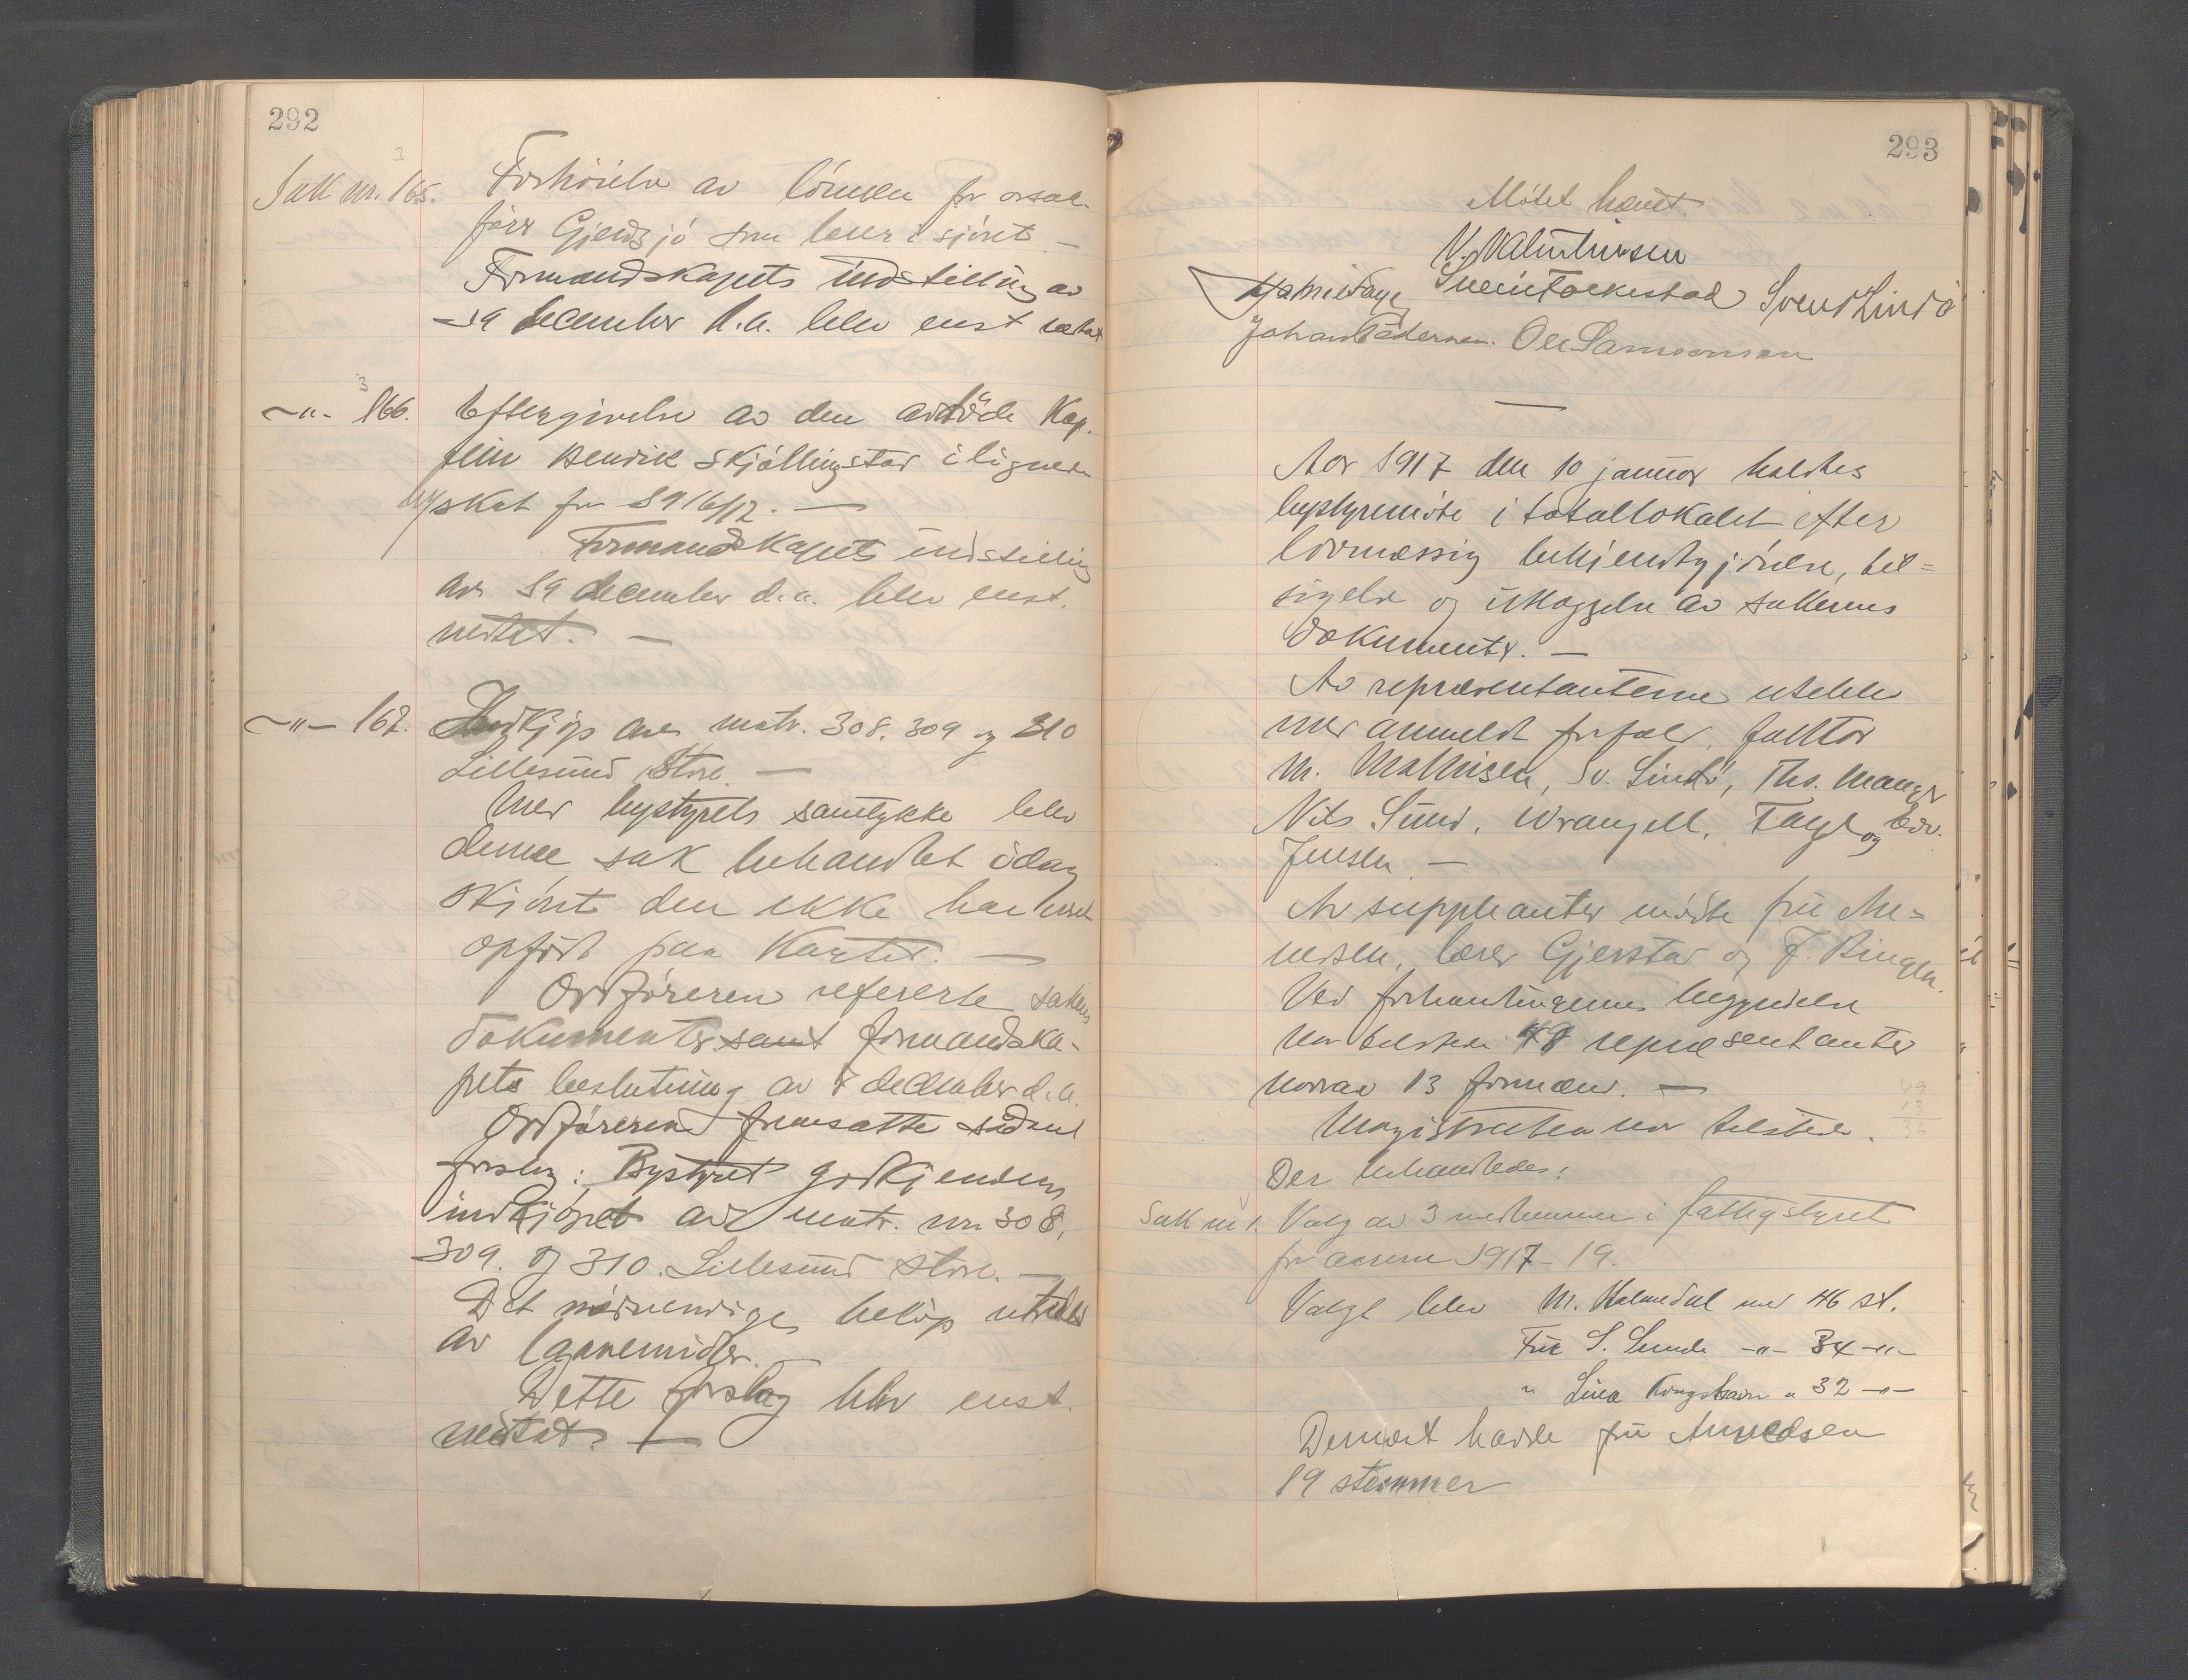 292
Sak nr. 165. Forhöielse av lönnen for
förer Gjerdsjö som lærer i sjöret. —
Formandskapets indstilling av
19 december d.a. blev enst vedtat
—"— 166. Eftergivelse av den avdöde Kap-
tein Henrik Skjöllingstad ilignede
byskat for 1916/17. —
Formandskapets indstilling
av 19 december d.a. blev enst.
vedtat. —
—"— 167. Indkjöp av matr. 308. 309 og 310
Lillesund Store. —
Med bystyrets samtykke blev
denne sak behandlet idag
skjönt den ikke har været
opfört paa Kartet. —
Ordföreren refererte sakens
dokumenter samt formandska-
pets beslutning av 8 december d.a.
Ordföreren fremsatte sådant
forslag: Bystyret godkjender
indkjöpet av matr. nr 308,
309. og 310. Lillesund store. —
Det nödvendige belöp utredes
av laanemidler. —
Dette forslag blev enst.
vedtat. —
293
Mötet hævet.
V. Valentinsen
Svein Tockestad Svend Lindö
Johan Pedersen. Ole Samsonsen
—
Aar 1917 den 10 januar holdtes
bystyremöte i totallokalet efter
lovmæssig bekjendtgjörelse, til=
sigelse og utlæggelse av sakernes
dokumenter. —
Av repræsentanterne uteblev
med anmeldt forfald, faktor
M. Mathisen, Sv. Lindö, Ths. Manger
Nils Sund, Wrangell, Faye og Edv.
Jensen. —
Av suppleanter mödte fru An=
nedsen, lærer Gjerstad og F. Ringen.
Ved forhandlingernes begyndelse
var tilstede 49 repræsentanter
hvorav 13 formænd. —
49
13
36
Magistraten var tilstede.
Der behandledes:
Sak nr 1. Valg av 3 medlemmer i fattigstyret
for aarene 1917-19.
Valgt blev M. Halmedal med 46 st.
Fru S. Sunde —"— 34 —"—
" Lina Kongshavn " 32 —"—
Dernæst havde fru Annedsen
19 stemmer